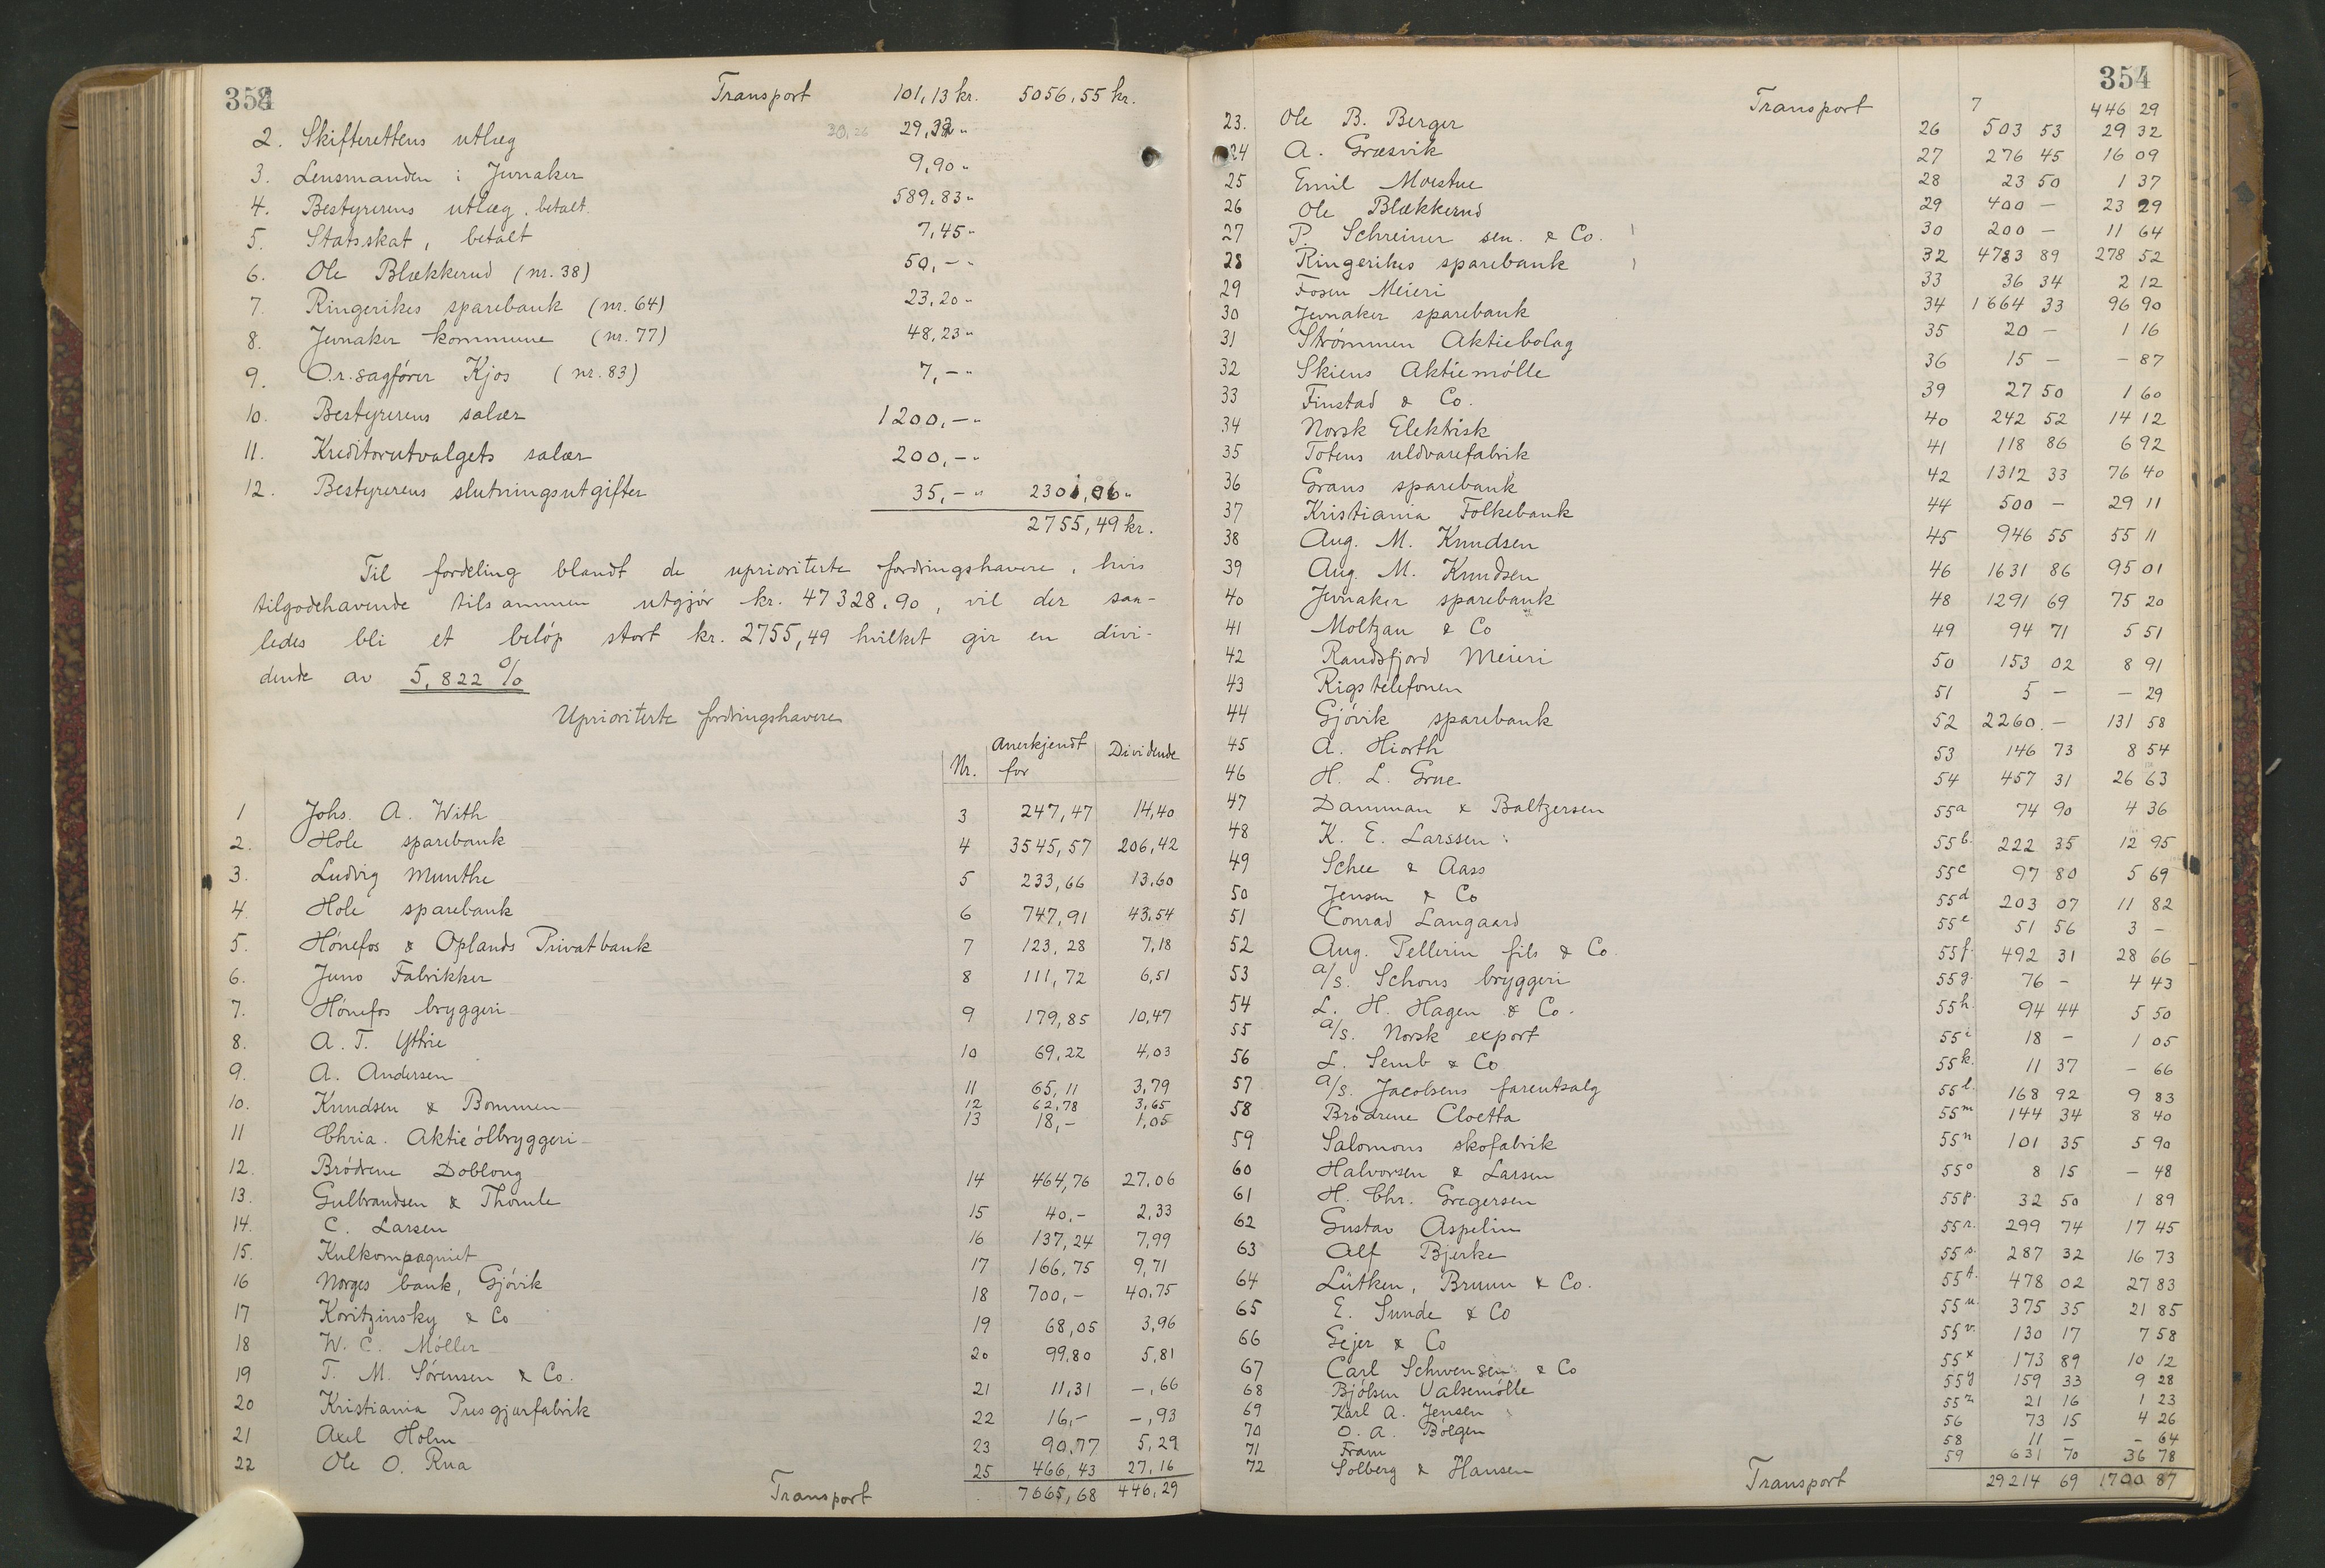 353
Transport 101,13 kr. 5056,55 kr.
2. Skifterettens utlæg 30,26 29,32 "
3. Lensmanden i Jevnaker 9,90 "
4. Bestyrerens utlæg, betalt. 589,83 "
5. Statsskat, betalt 7,45 "
6. Ole Blækkerud (nr. 38) 50,- "
7. Ringerikes sparebank (nr. 64) 23,20 "
8. Jevnaker kommune (nr. 77) 48,23 "
9. O.r.sagfører Kjos (nr. 83) 7,- "
10. Bestyrerens salær 1200,- "
11. Kreditorutvalgets salær 200,- "
12. Bestyrerens slutningsutgifter 35,- " 2301,06 "
2755,49 kr.
Til fordeling blandt de uprioriterte fordringshavere, hvis
tilgodehavende tilsammen utgjør kr. 47328.90, vil der saa-
ledes bli et beløp stort kr. 2755,49 hvilket gir en divi-
dende av 5,822 %
Uprioriterte fordringshavere
Nr. Anerkjendt for Dividende
1 Johs. A. With 3 247,47 14,40
2. Hole sparebank 4 3545,57 206,42
3. Ludvig Munthe 5 233,66 13,60
4. Hole sparebank 6 747,91 43,54
5. Hønefos & Oplands Privatbank 7 123,28 7,18
6. Juno Fabrikker 8 111,72 6,51
7. Hønefos bryggeri 9 179,85 10,47
8. A. T. Yttrie 10 69,22 4,03
9. A. Andersen 11 65,11 3,79
10. Knudsen & Bommen 12 62,78 3,65
11 Chria. Aktieølbryggeri 13 18,- 1,05
12. Brødrene Dobloug 14 464,76 27,06
13. Gulbrandsen & Thomle 15 40,- 2,33
14. C. Larsen 16 137,24 7,99
15. Kulkompagniet 17 166,75 9,71
16 Norges bank, Gjøvik 18 700,- 40,75
17 Koritzinsky & Co 19 68,05 3,96
18 W. C. Møller 20 99,80 5,81
19 T. M. Sørensen & Co. 21 11,31 -,66
20 Kristiania Presgjærfabrik 22 16,- -,93
21 Axel Holm 23 90,77 5,29
22 Ole O. Rua 25 466,43 27,16
Transport 7665,68 446,29
354
Transport 7 446 29
23. Ole B. Berger 26 503 53 29 32
24 A. Græsvik 27 276 45 16 09
25 Emil Moestue 28 23 50 1 37
26 Ole Blækkerud 29 400 — 23 29
27 P. Schreiner sen. & Co. 30 200 — 11 64
28 Ringerikes sparebank 32 4783 89 278 52
29 Fosen Meieri 33 36 34 2 12
30 Jevnaker sparebank 34 1664 33 96 90
31 Strømmen Aktiebolag 35 20 — 1 16
32 Skiens Aktiemølle 36 15 — — 87
33 Finstad & Co. 39 27 50 1 60
34 Norsk Elektrisk 40 242 52 14 12
35 Totens uldvarefabrik 41 118 86 6 92
36 Grans sparebank 42 1312 33 76 40
37 Kristiania Folkebank 44 500 — 29 11
38 Aug. M. Knudsen 45 946 55 55 11
39 Aug. M. Knudsen 46 1631 86 95 01
40 Jevnaker sparebank 48 1291 69 75 20
41 Moltzau & Co 49 94 71 5 51
42 Randsfjord Meieri 50 153 02 8 91
43 Rigstelefonen 51 5 — — 29
44 Gjøvik sparebank 52 2260 — 131 58
45 A. Hiorth 53 146 73 8 54
46 H. L. Grue 54 457 31 26 63
47 Damman & Baltzersen 55a 74 90 4 36
48 K. E. Larssen 55b. 222 35 12 95
49 Schee & Aass 55c 97 80 5 69
50 Jensen & Co 55d 203 07 11 82
51 Conrad Langaard 55e 51 56 3 —
52 Aug. Pellerin fils & Co. 55f. 492 31 28 66
53 a/s. Schous bryggeri 55g. 76 — 4 43
54 L. H. Hagen & Co. 55h. 94 44 5 50
55 a/s. Norsk export 55i 18 — 1 05
56 L. Semb & Co 55k. 11 37 — 66
57 a/s. Jacobsens farentsalg 55l. 168 92 9 83
58 Brødrene Cloetta 55m 144 34 8 40
59 Salomons skofabrik 55n 101 35 5 90
60 Halvorsen & Larsen 55o 8 15 — 48
61 H. Chr. Gregersen 55p. 32 50 1 89
62 Gustav Aspelin 55r. 299 74 17 45
63 Alf Bjerke 55s. 287 32 16 73
64 Lütken, Bruun & Co. 55t. 478 02 27 83
65 E. Sunde & Co 55u. 375 35 21 85
66 Gejer & Co 55v. 130 17 7 58
67 Carl Schwensen & Co 55x 173 89 10 12
68 Bjølsen Valsemølle 55y 159 33 9 28
69 Karl A. Jensen 55z 21 16 1 23
70 O. A. Bølgen 56 73 15 4 26
71 Fram 58 11 — — 64
72 Solberg & Hansen 59 631 70 36 78
Transport 29214 69 1700 87